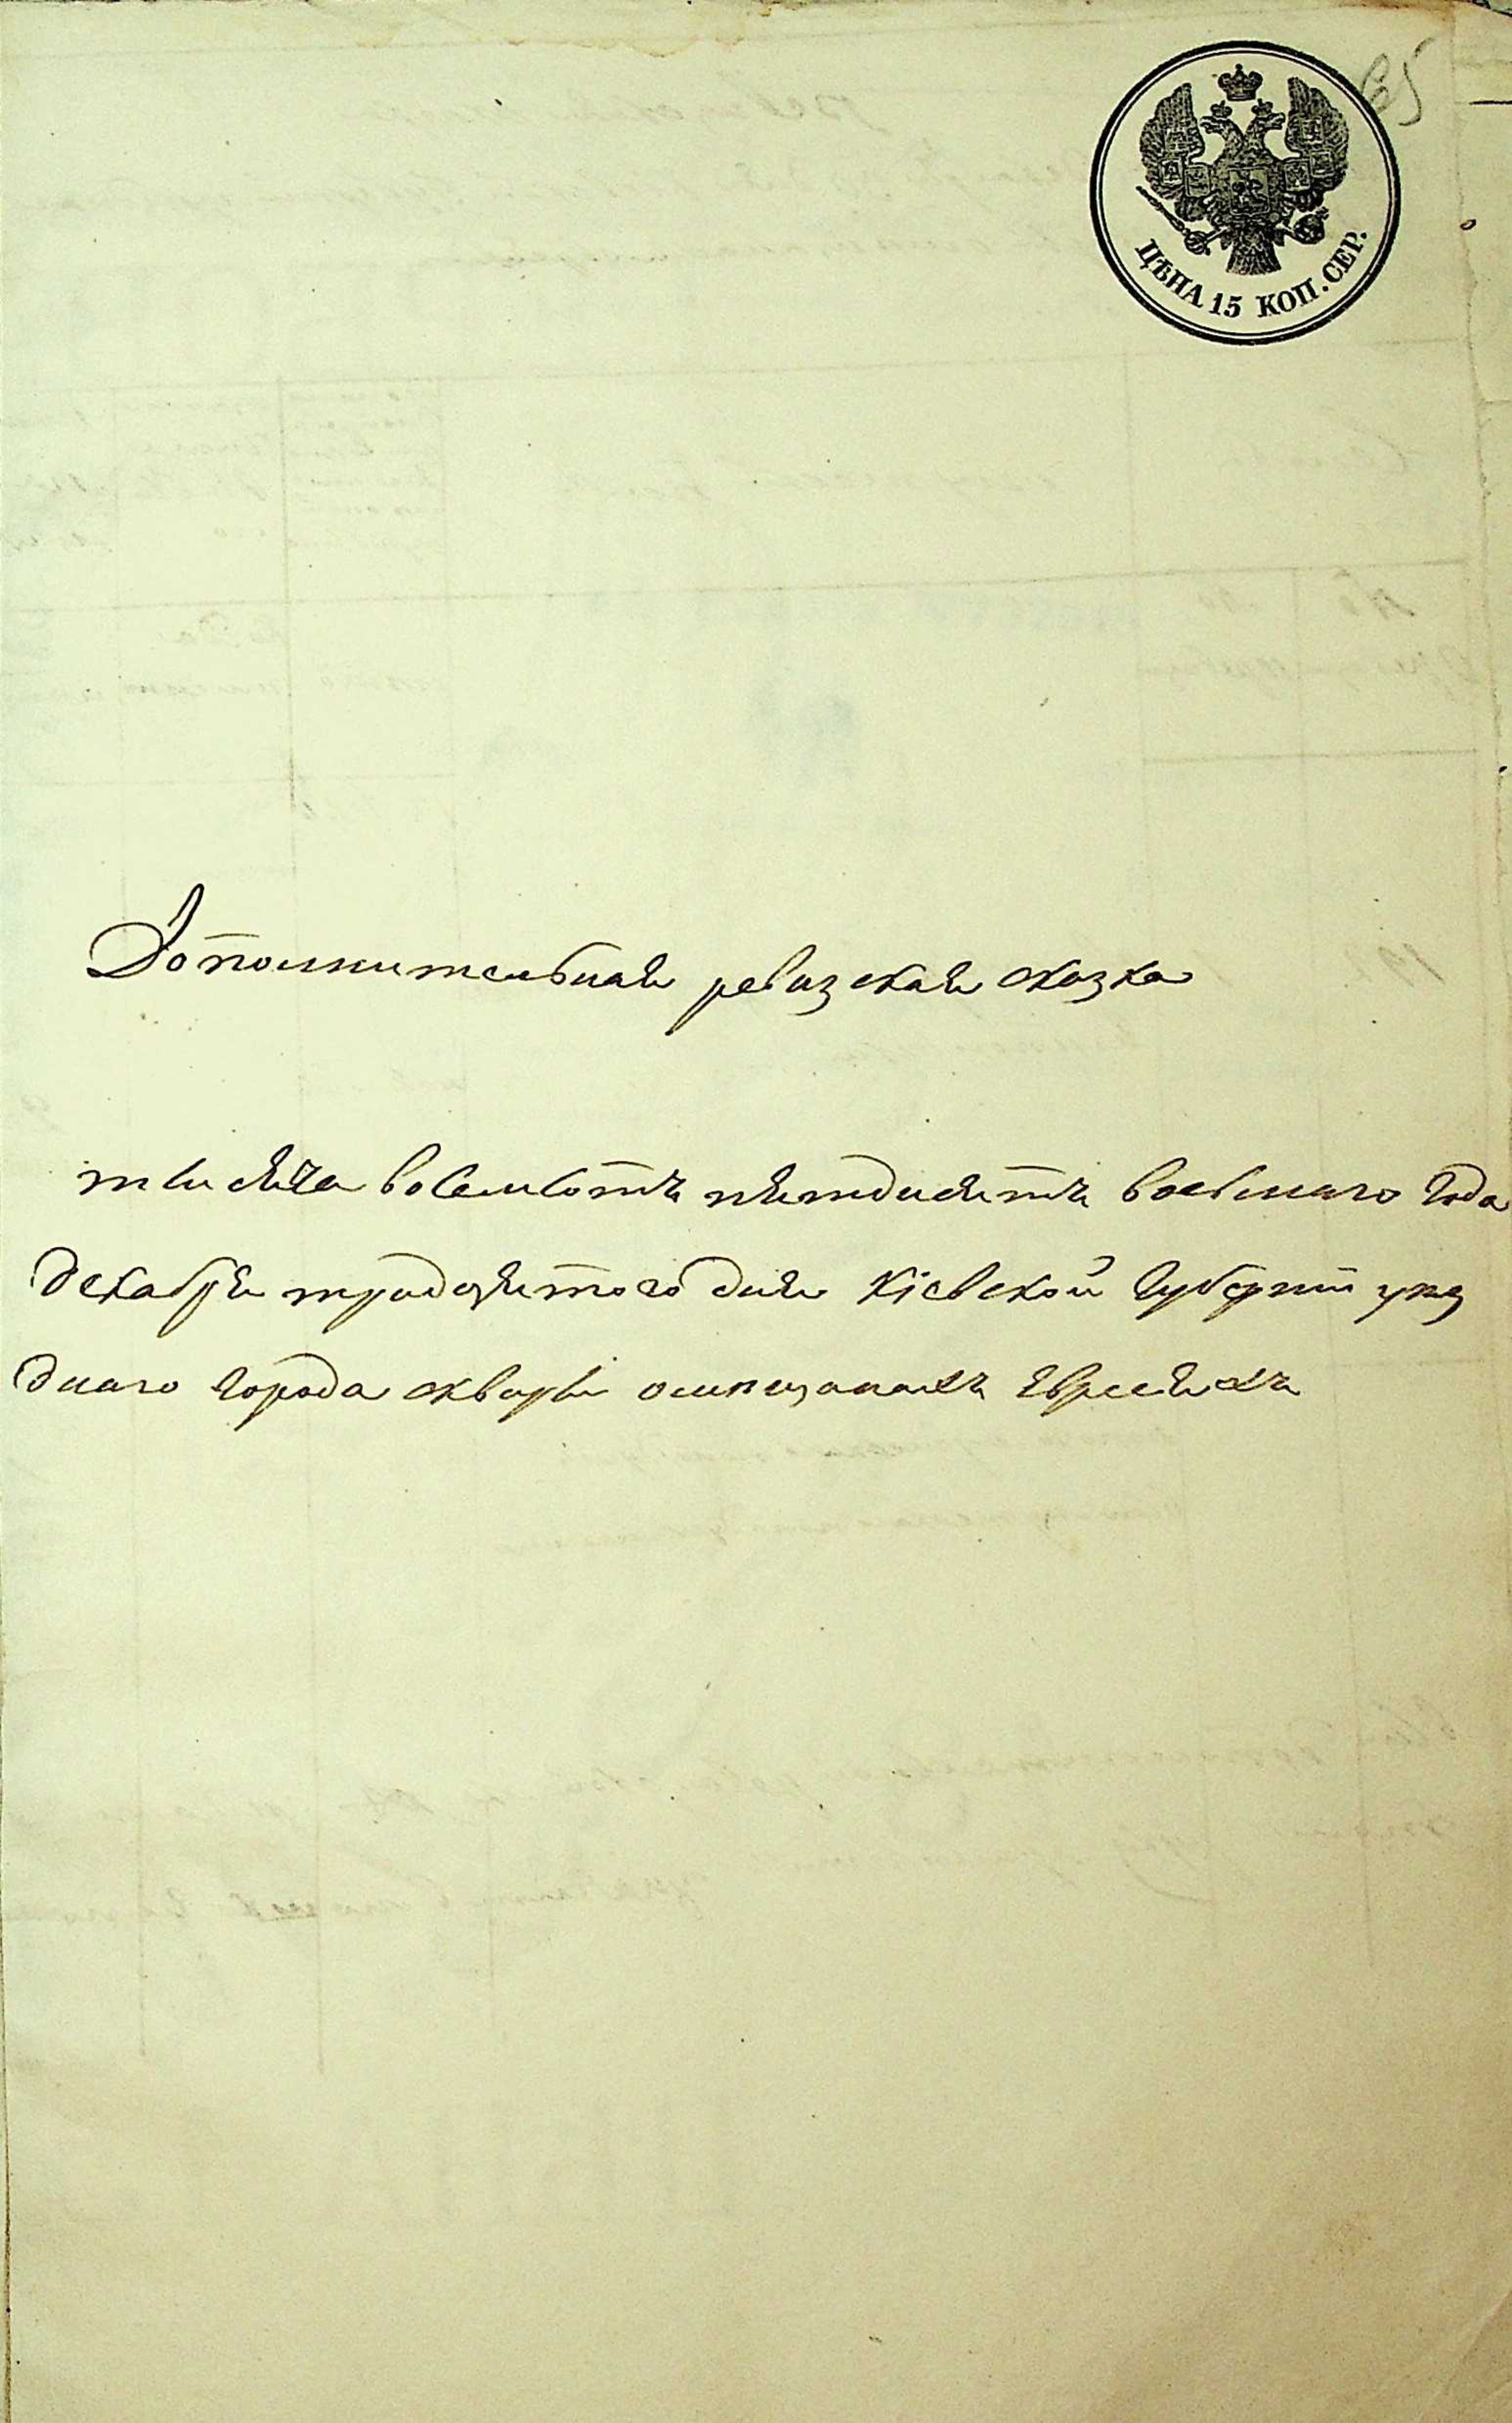 65
ЦѢНА 15 КОП. СЕР.
Дополнительная ревизская сказка
тысяча восемьсотъ пятдисятъ восьмаго года
декабря тридцятого дня Кіевской Губерніи уѣз
днаго города сквыры омѣщанахъ Евреяхъ